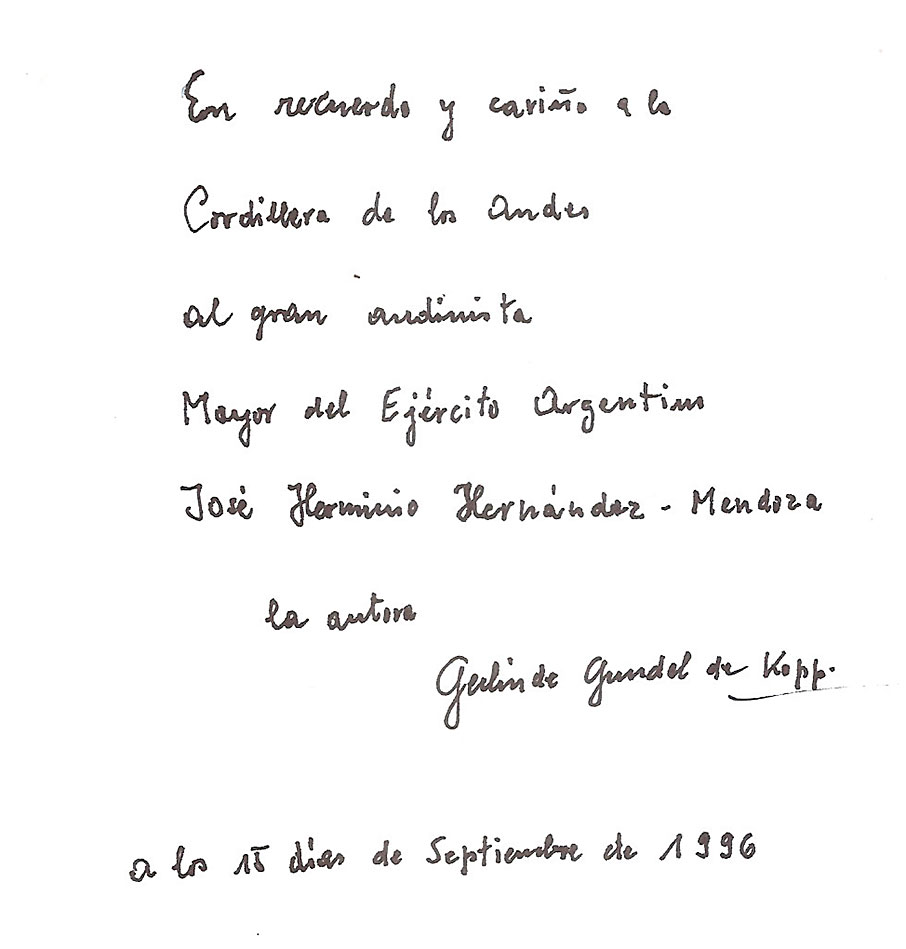 En recuerdo y cariño a la
Cordillera de los Andes
al gran andinista
Mayor del Ejército Argentino
José Herminio Hernández - Mendoza
la autora
Gerlinde Gundel de Kopp.
a los 15 días de Septiembre de 1996